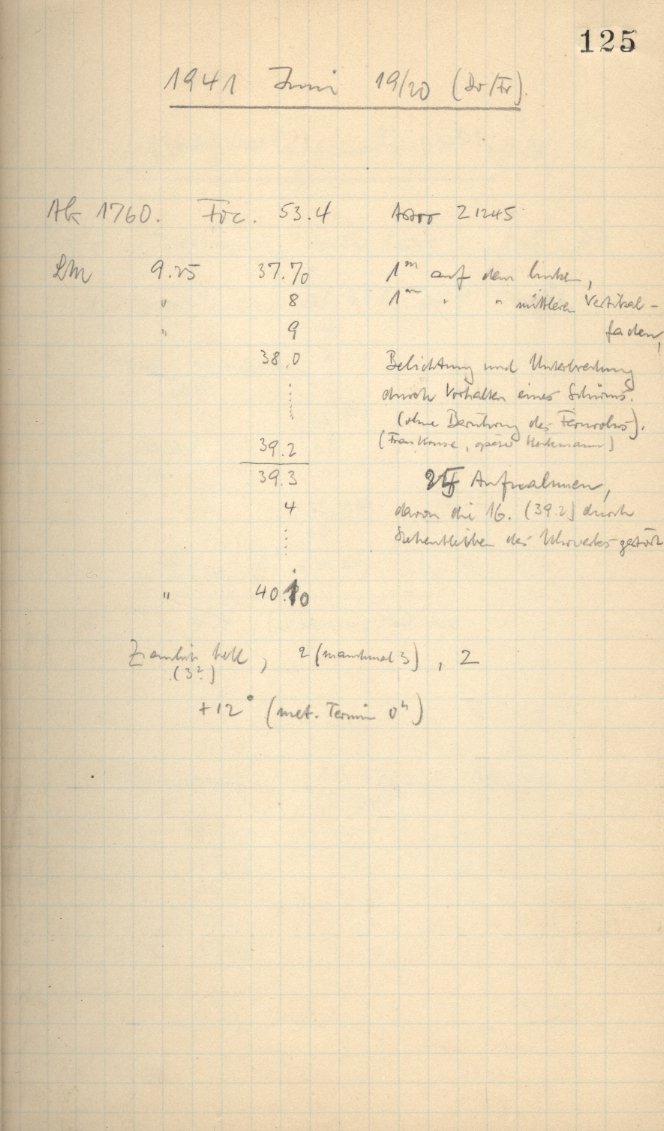 125
1941 Juni 19/20 (Do/Fr).
Ak 1760. Foc. 53.4 Astro 21245
LM 9.25 37.70 1m auf dem linken,
" 8 1m " " mittleren Vertikal-
" 9 faden,
38.0 Belichtung und Unterbrechung
durch Vorhalten eines Schirms.
(ohne Berührung des Fernrohrs).
39.2 (Frau Krause,
39.3 Aufnahmen,
4 davon die 16. (39.2) durch
Stehenbleiben des Uhrwerks gestört
" 40.10
Ziemlich hell, 2 (manchmal 3), 2
(3?)
+12° (met. Termin 0h)